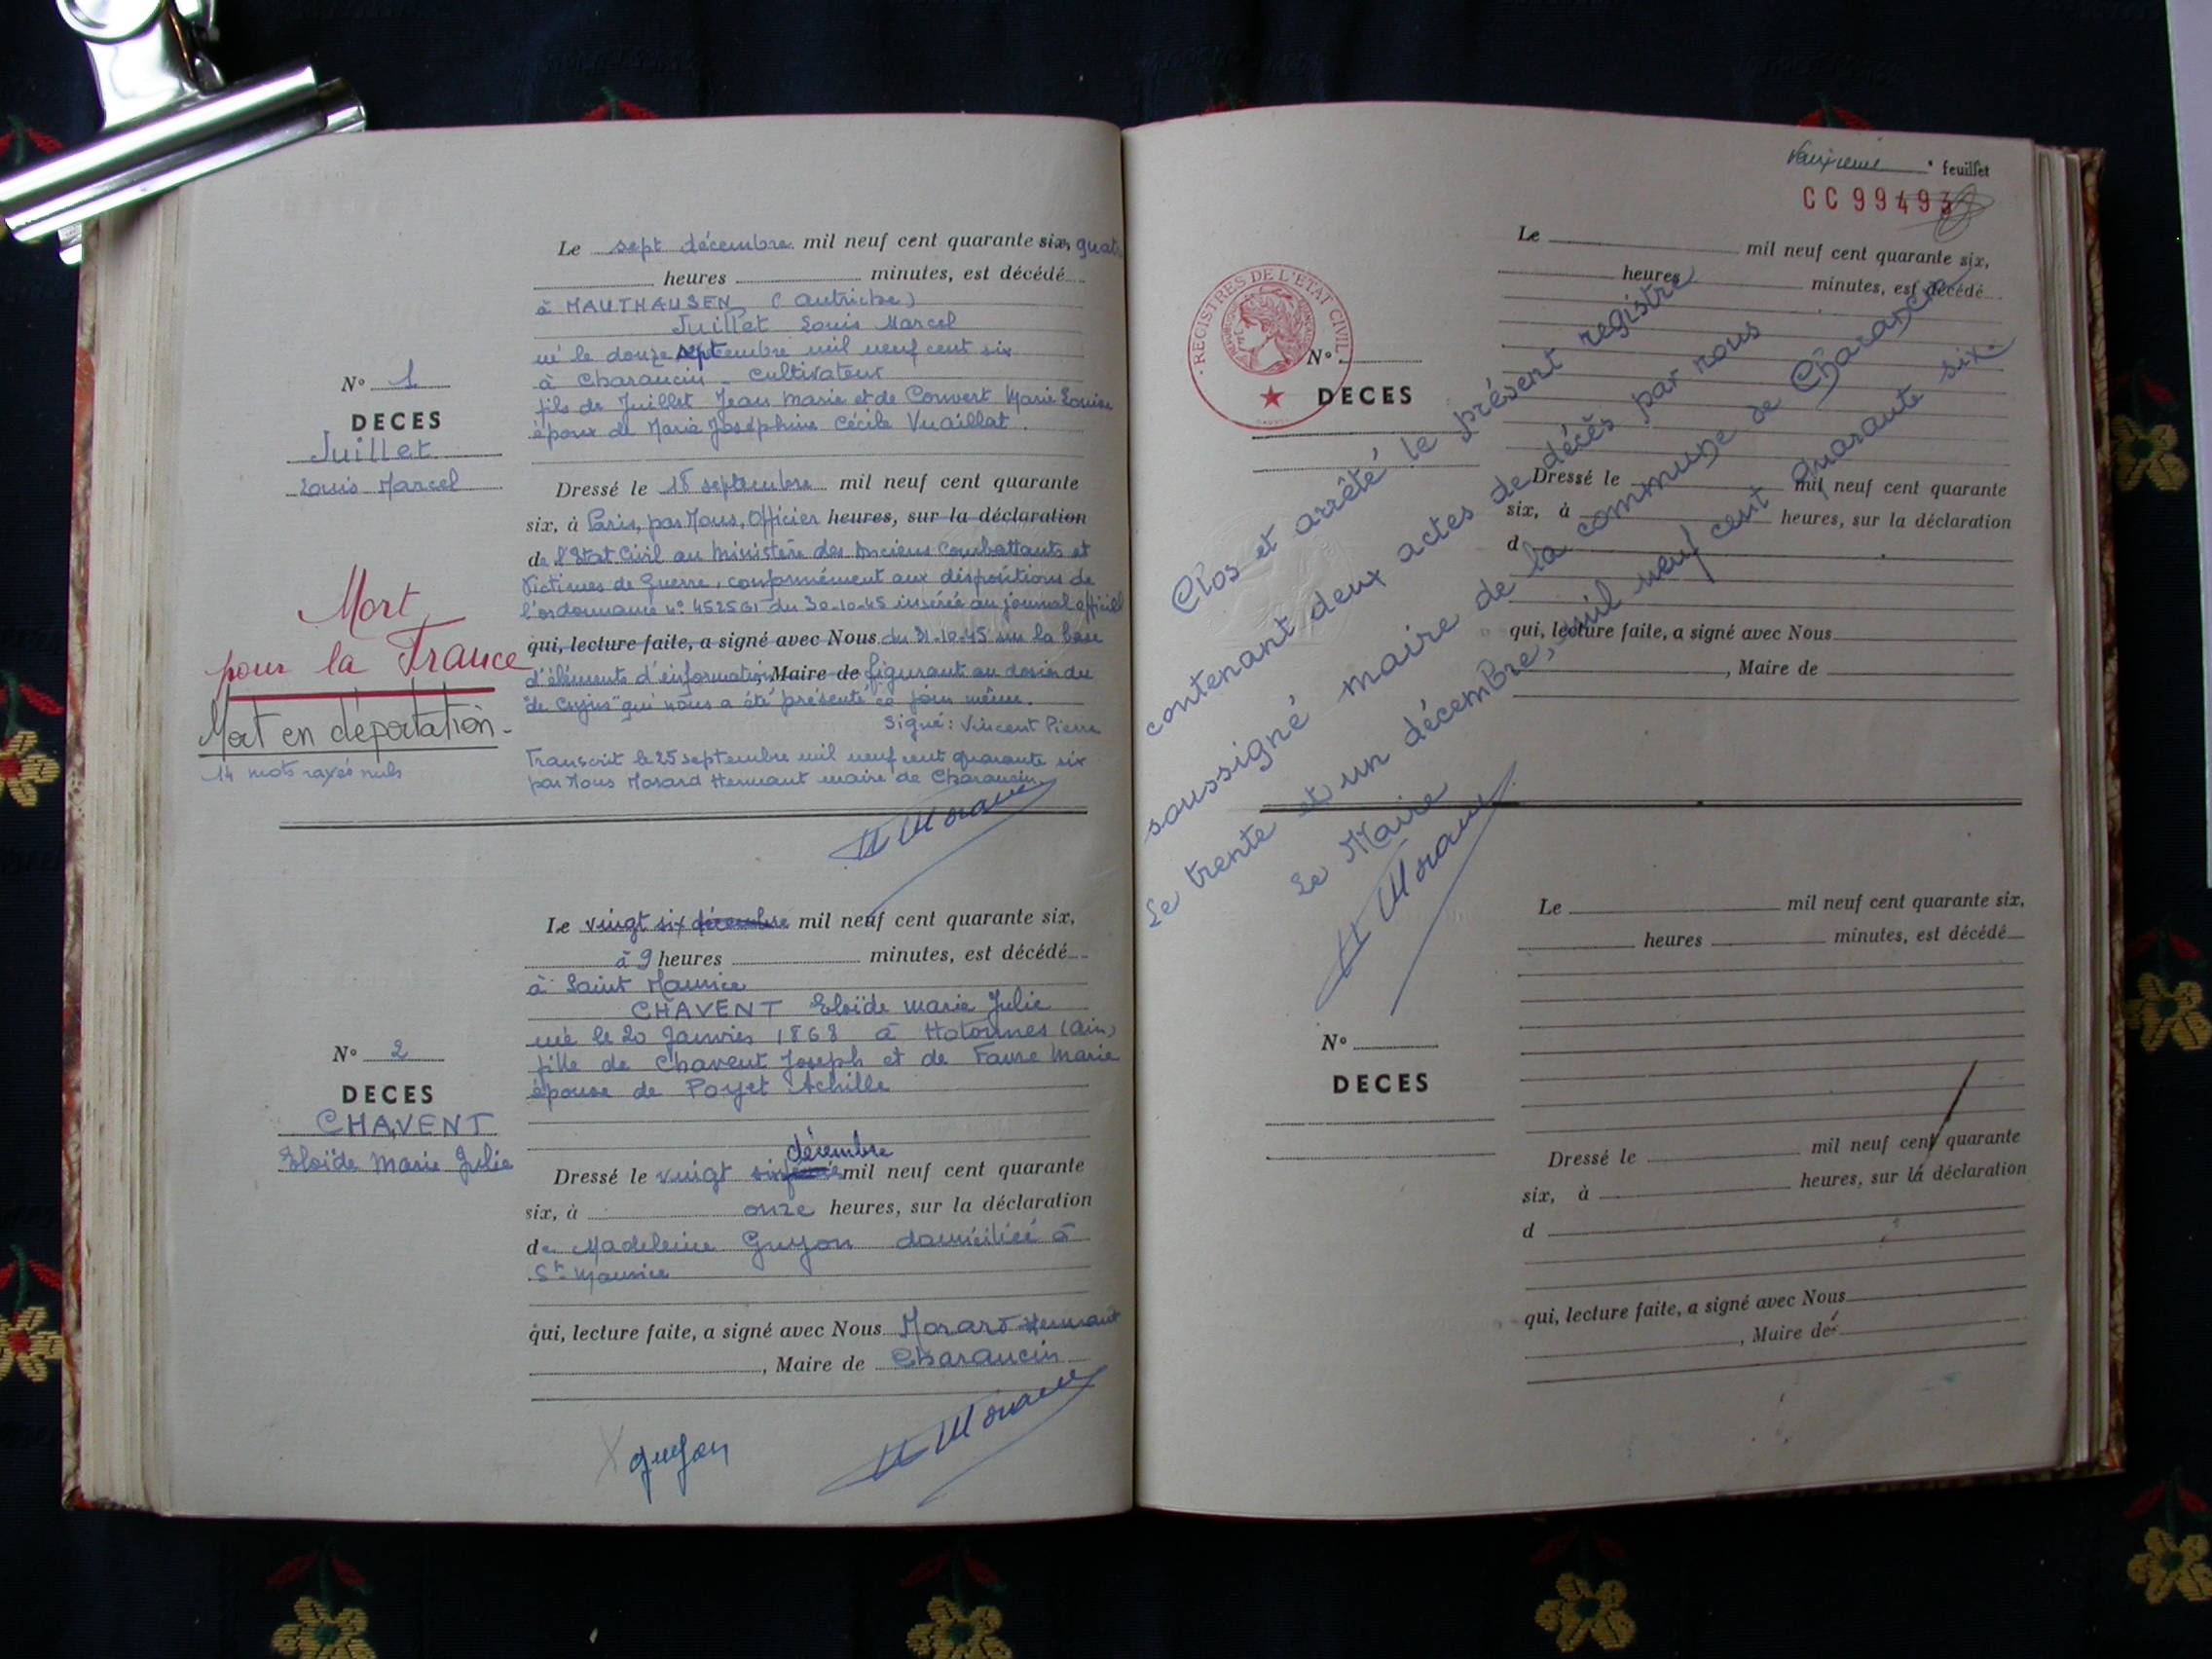 N° 1
DECES
Juillet
Louis Marcel
Mort
pour la France
Mort en déportation.
14 mots rayés nuls
Le sept décembre mil neuf cent quarante six, quatre
heures minutes, est décédé
à MAUTHAUSEN (Autriche)
Juillet Louis Marcel
né le douze septembre mil neuf cent six
à Charancin - Cultivateur
fils de Juillet Jean Marie et de Convert Marie Louise
époux de Marie Joséphine Cécile Vuaillat.
Dressé le 18 septembre mil neuf cent quarante
six, à Paris, par Nous, Officier heures, sur la déclaration
de l'Etat Civil au Ministère des Anciens Combattants et
Victimes de Guerre, conformément aux dispositions de
l'ordonnance n° 452561 du 30-10-45 insérée au journal officiel
qui, lecture faite, a signé avec Nous du 31-10-45 sur la base
d'éléments d'information, Maire de figurant au dossier du
"de cujus" qui nous a été présenté ce jour même.
Signé : Vincent Pierre
Transcrit le 25 septembre mil neuf cent quarante six
par Nous Morard Hermant maire de Charancin
H Morard
N° 2
DECES
CHAVENT
Eloïde Marie Julie
Le vingt six décembre mil neuf cent quarante six,
à 9 heures minutes, est décédé
à Saint Maurice
CHAVENT Eloïde Marie Julie
née le 20 Janvier 1868 à Hotonnes (Ain)
fille de Chavent Joseph et de Favre Marie
épouse de Poyet Achille
décembre
Dressé le vingt six mil neuf cent quarante
six, à onze heures, sur la déclaration
de Madeleine Guyon domiciliée à
St Maurice
qui, lecture faite, a signé avec Nous Morard Hermant
, Maire de Charancin
Guyon
H Morard
feuillet
CC 99493
REGISTRES DE L'ETAT CIVIL
N°
DECES
Le mil neuf cent quarante six,
heures minutes, est décédé
Dressé le mil neuf cent quarante
six, à heures, sur la déclaration
d
qui, lecture faite, a signé avec Nous
, Maire de
Clos et arrêté le présent registre
contenant deux actes de décès par nous
soussigné maire de la commune de Charancin
Le trente et un décembre, mil neuf cent quarante six.
Le Maire
H Morard
N°
DECES
Le mil neuf cent quarante six,
heures minutes, est décédé
Dressé le mil neuf cent quarante
six, à heures, sur la déclaration
d
qui, lecture faite, a signé avec Nous
, Maire de